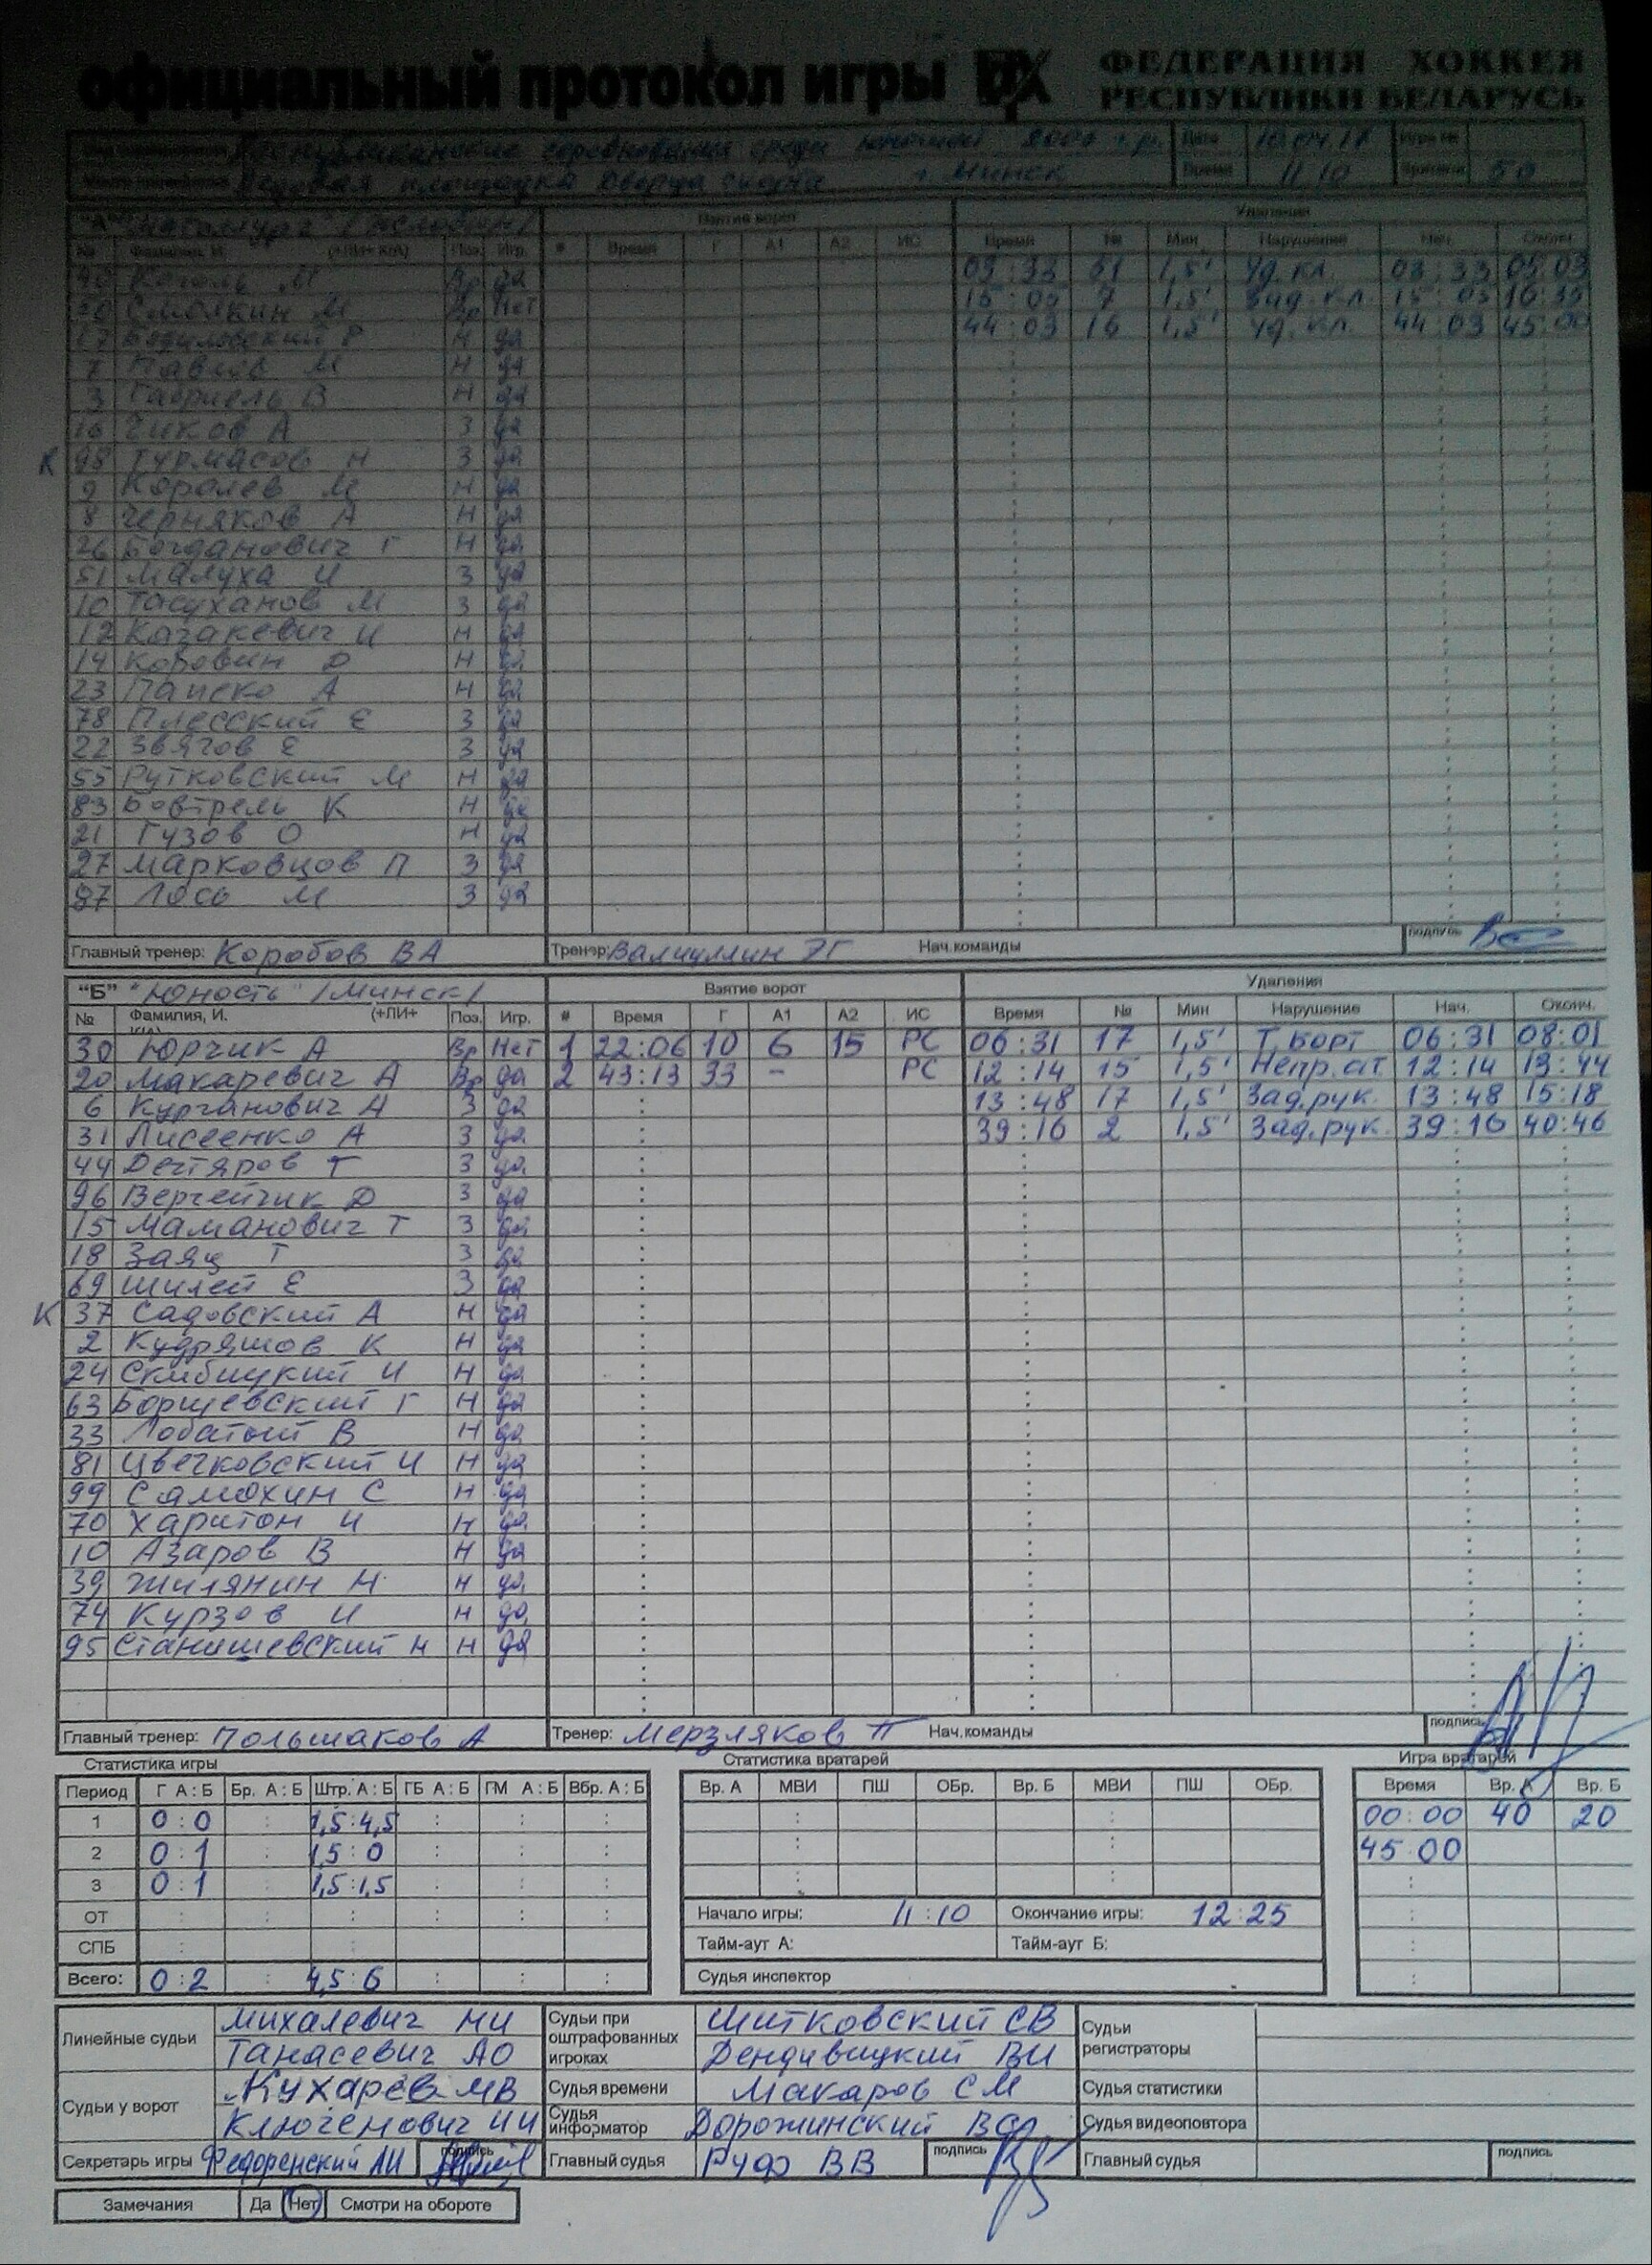 официальный протокол игры ФЕДЕРАЦИЯ ХОККЕЯ
РЕСПУБЛИКИ БЕЛАРУСЬ
Республиканские соревнования среди юношей г.р. Дата
Ледовая площадка Дворца спорта г. Минск Время 11 10
"А" Взятие ворот Удаления
№ Фамилия, И. Поз. Игр. # Время Г А1 А2 ИС Время № Мин Нарушение Нач. Оконч.
40 М Вр да 03:33 51 1,5' Уд. кл. 03:33 05:03
Смолкин М Вр Нет 15:05 7 1,5' Зад. кл. 15:05 16:35
17 Р Н да 44:03 16 1,5' Уд. кл. 44:03 45:00
7 Павлов М Н да
3 Габриель В Н да
16 Чиков А З да
К 98 Турмасов Н З да
9 Королев М Н да
8 Черняков А Н да
26 Богданович Г Н да
51 Малуха И З да
10 Тасуханов М З да
12 Казакевич И Н да
14 Коровин Д Н да
23 Панско А Н да
78 Плесский Е З да
22 Звягов Е З да
55 Рутковский М Н да
83 Бовтрель К Н да
21 Гузов О Н да
27 Марковцов П З да
87 Лось М З да
Главный тренер: Коробов ВА Тренер: Валиуллин ЭГ Нач.команды подпись
"Б" "Юность" /Минск/ Взятие ворот Удаления
№ Фамилия, И. (+ЛИ+ Поз. Игр. # Время Г А1 А2 ИС Время № Мин Нарушение Нач. Оконч.
30 Юрчик А Вр Нет 1 22:06 10 6 15 РС 06:31 17 1,5' Т. борт 06:31 08:01
20 Макаревич А Вр да 2 43:13 33 - РС 12:14 15 1,5' Непр.ат. 12:14 13:44
6 Курганович А З да 13:48 17 1,5' Зад.рук. 13:48 15:18
31 Лисеенко А З да 39:16 2 1,5' Зад.рук. 39:16 40:46
44 Дегтяров Т З да
96 Вергейчик Д З да
15 Маманович Т З да
18 Заяц Т З да
69 Шилей Е З да
К 37 Садовский А Н да
2 Кудряшов К Н да
24 Скибицкий И Н да
63 Борщевский Г Н да
33 Лобатый В Н да
81 Цвечковский И Н да
99 Самохин С Н да
70 Харитон И Н да
10 Азаров В Н да
39 Жилянин Н Н да
74 Курзов И Н да
95 Станишевский Н Н да
Главный тренер: Польшаков А Тренер: Мерзляков П Нач.команды подпись
Статистика игры Статистика вратарей Игра вратарей
Период Г А:Б Бр. А:Б Штр. А:Б ГБ А:Б ГМ А:Б Вбр. А:Б Вр. А МВИ ПШ ОБр. Вр. Б МВИ ПШ ОБр. Время Вр. А Вр. Б
1 0:0 1,5:4,5 00:00 40 20
2 0:1 1,5:0 45 00
3 0:1 1,5:1,5
ОТ Начало игры: 11:10 Окончание игры: 12:25
СПБ Тайм-аут А: Тайм-аут Б:
Всего: 0:2 4,5:6 Судья инспектор
Линейные судьи Михалевич НИ Судьи при оштрафованных игроках Шитковский СВ Судьи регистраторы
Танасевич АО ВИ
Судьи у ворот Кухарев МВ Судья времени Макаров СМ Судья статистики
Ключенович ИИ Судья информатор Дорожинский Судья видеоповтора
Секретарь игры Федоренский АИ подпись Главный судья Руф ВВ подпись Главный судья подпись
Замечания Да Нет Смотри на обороте